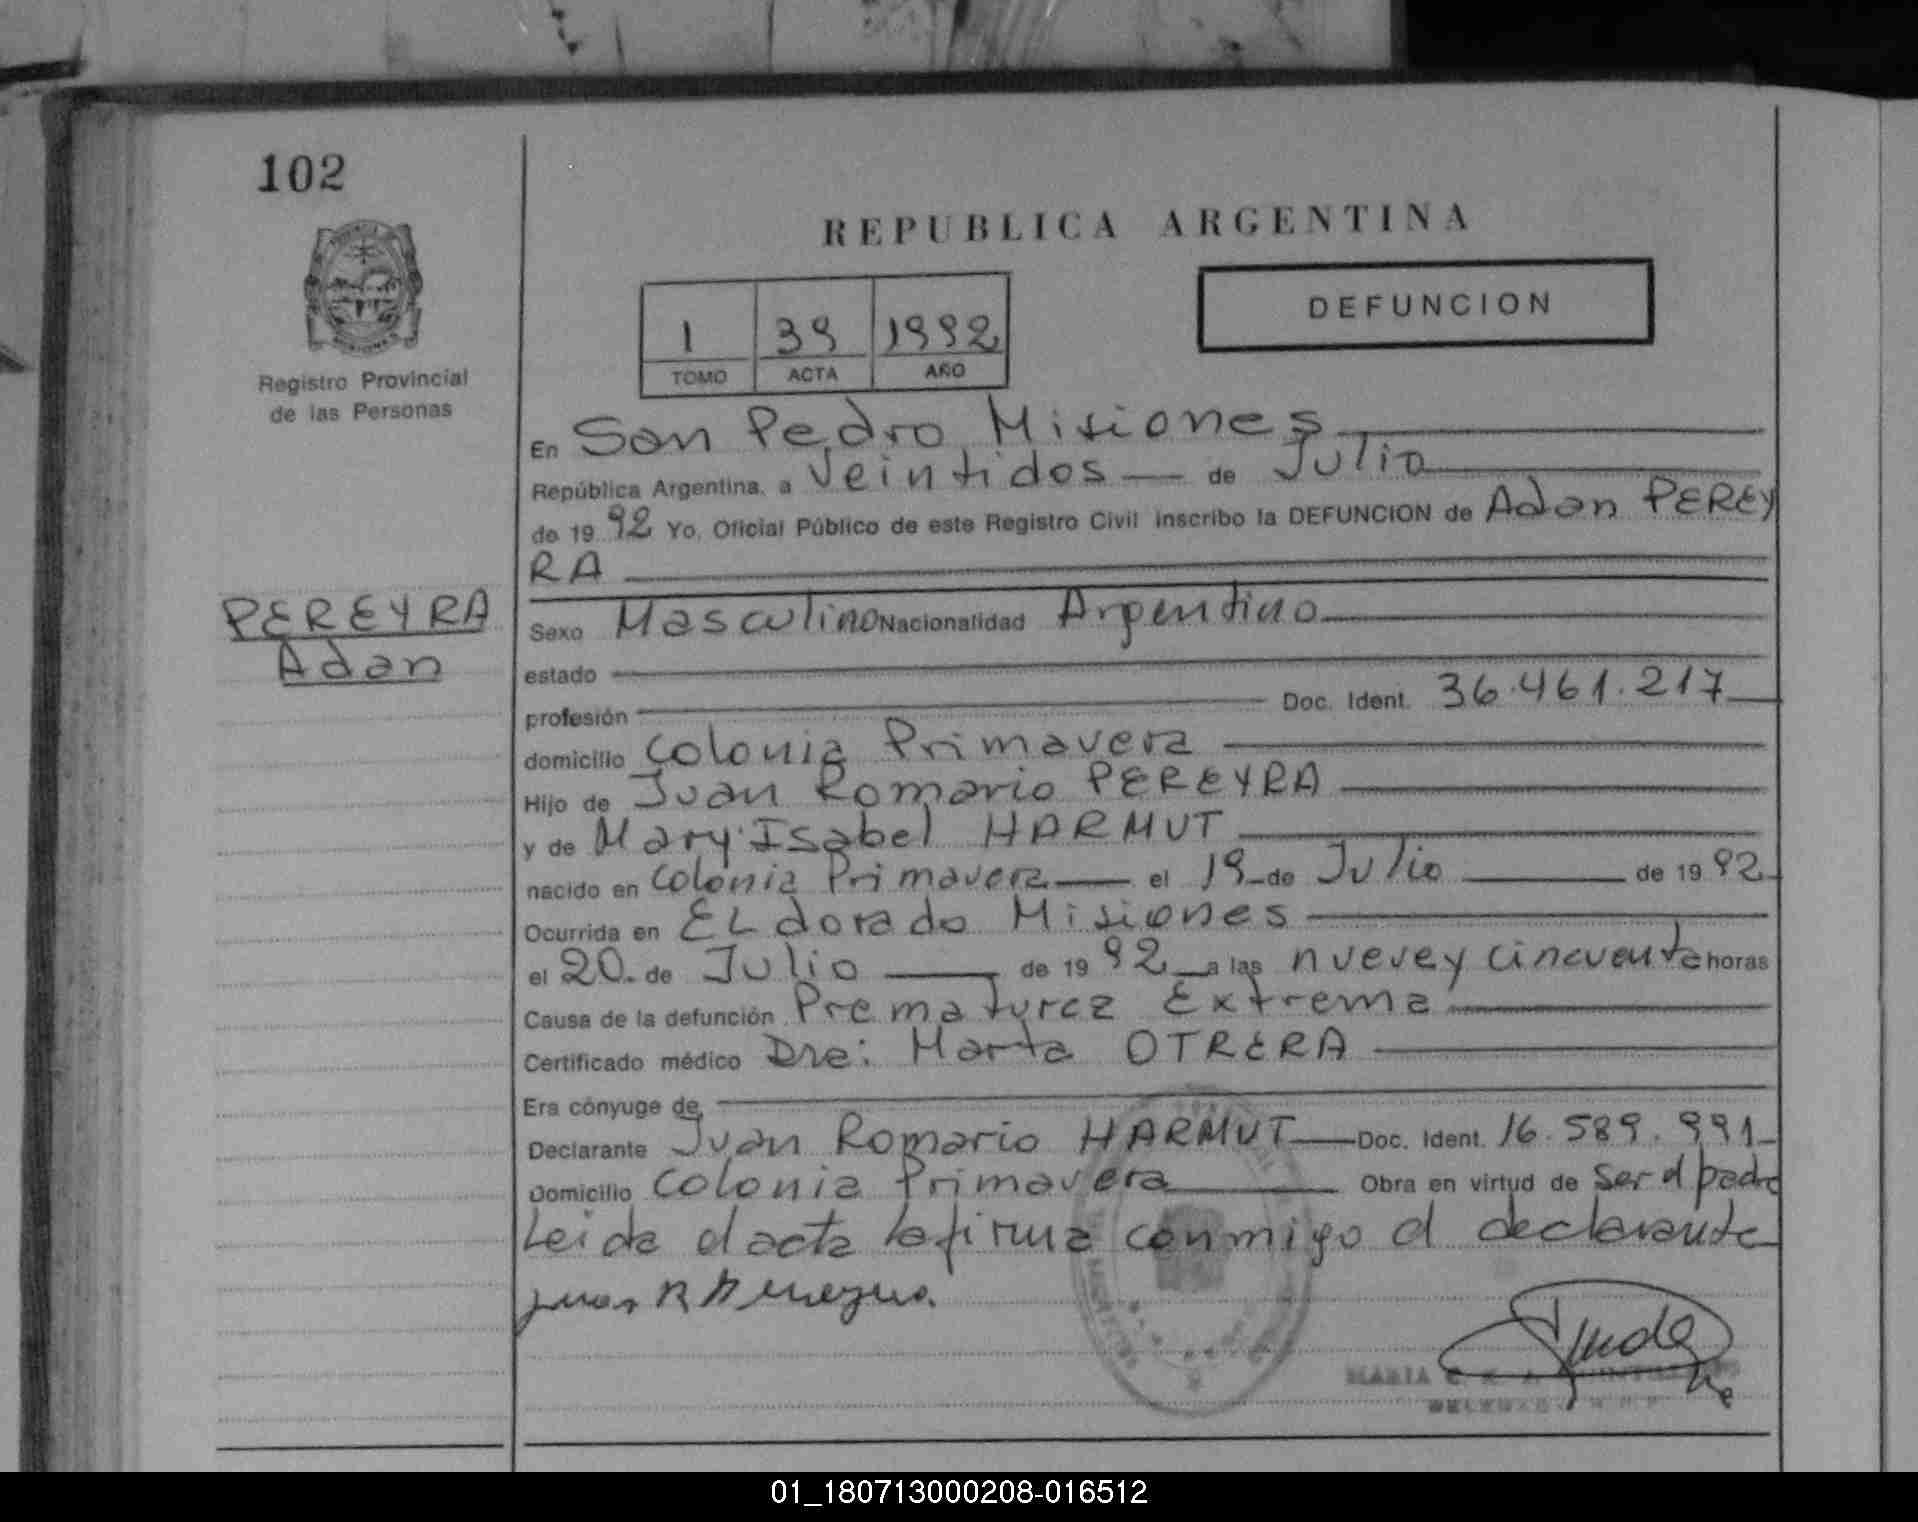 102
REPUBLICA ARGENTINA
DEFUNCION
1 39 1992
TOMO ACTA AÑO
Registro Provincial
de las Personas
En San Pedro Misiones
República Argentina, a veintidos de Julio
de 19 92 Yo, Oficial Público de este Registro Civil inscribo la DEFUNCION de Adan PEREY
RA
PEREYRA
Adan
Sexo Masculino Nacionalidad Argentino
estado
profesión Doc. Ident. 36.461.217
domicilio Colonia Primavera
Hijo de Juan Romario PEREYRA
y de Mary Isabel HARMUT
nacido en Colonia Primavera el 19 de Julio de 19 92
Ocurrida en ELdorado Misiones
el 20 de Julio de 19 92 a las nueve y cincuenta horas
Causa de la defunción Prematurez Extrema
Certificado médico Dra: Marta OTRERA
Era cónyuge de
Declarante Juan Romario HARMUT Doc. Ident. 16.589.991
Domicilio Colonia Primavera Obra en virtud de ser el padre
Leida el acta la firma conmigo el declarante
MARIA
01_180713000208-016512